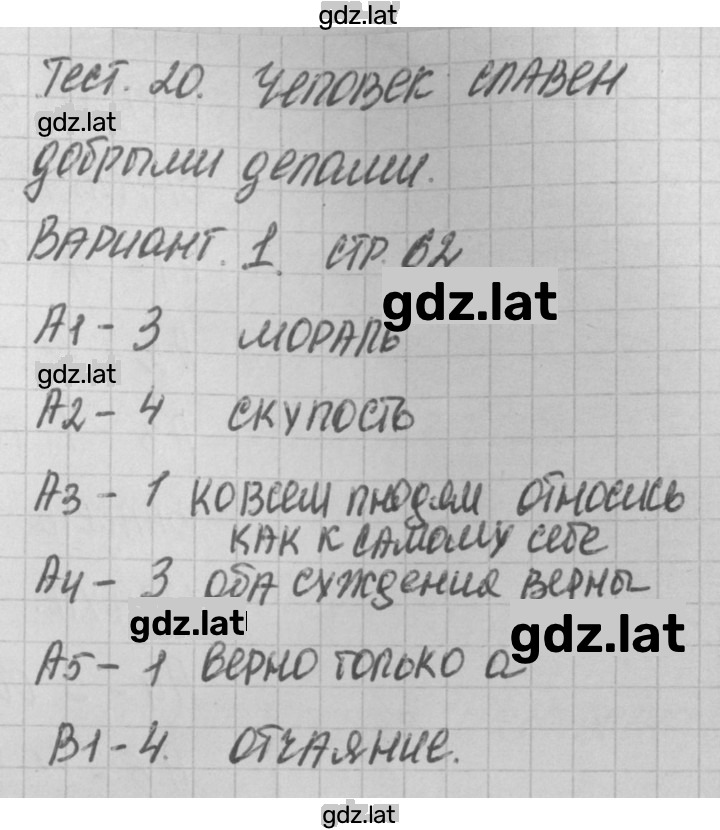 gdz.lat
Тест. 20. Человек славен
gdz.lat
добрыми делами.
Вариант. 1. стр. 62
gdz.lat
А1 - 3 мораль
gdz.lat
А2 - 4 скупость
А3 - 1 ко всем людям относись
как к самому себе
А4 - 3 оба суждения верны
gdz.lat
gdz.lat
А5 - 1 верно только а
В1 - 4. отчаяние.
gdz.lat